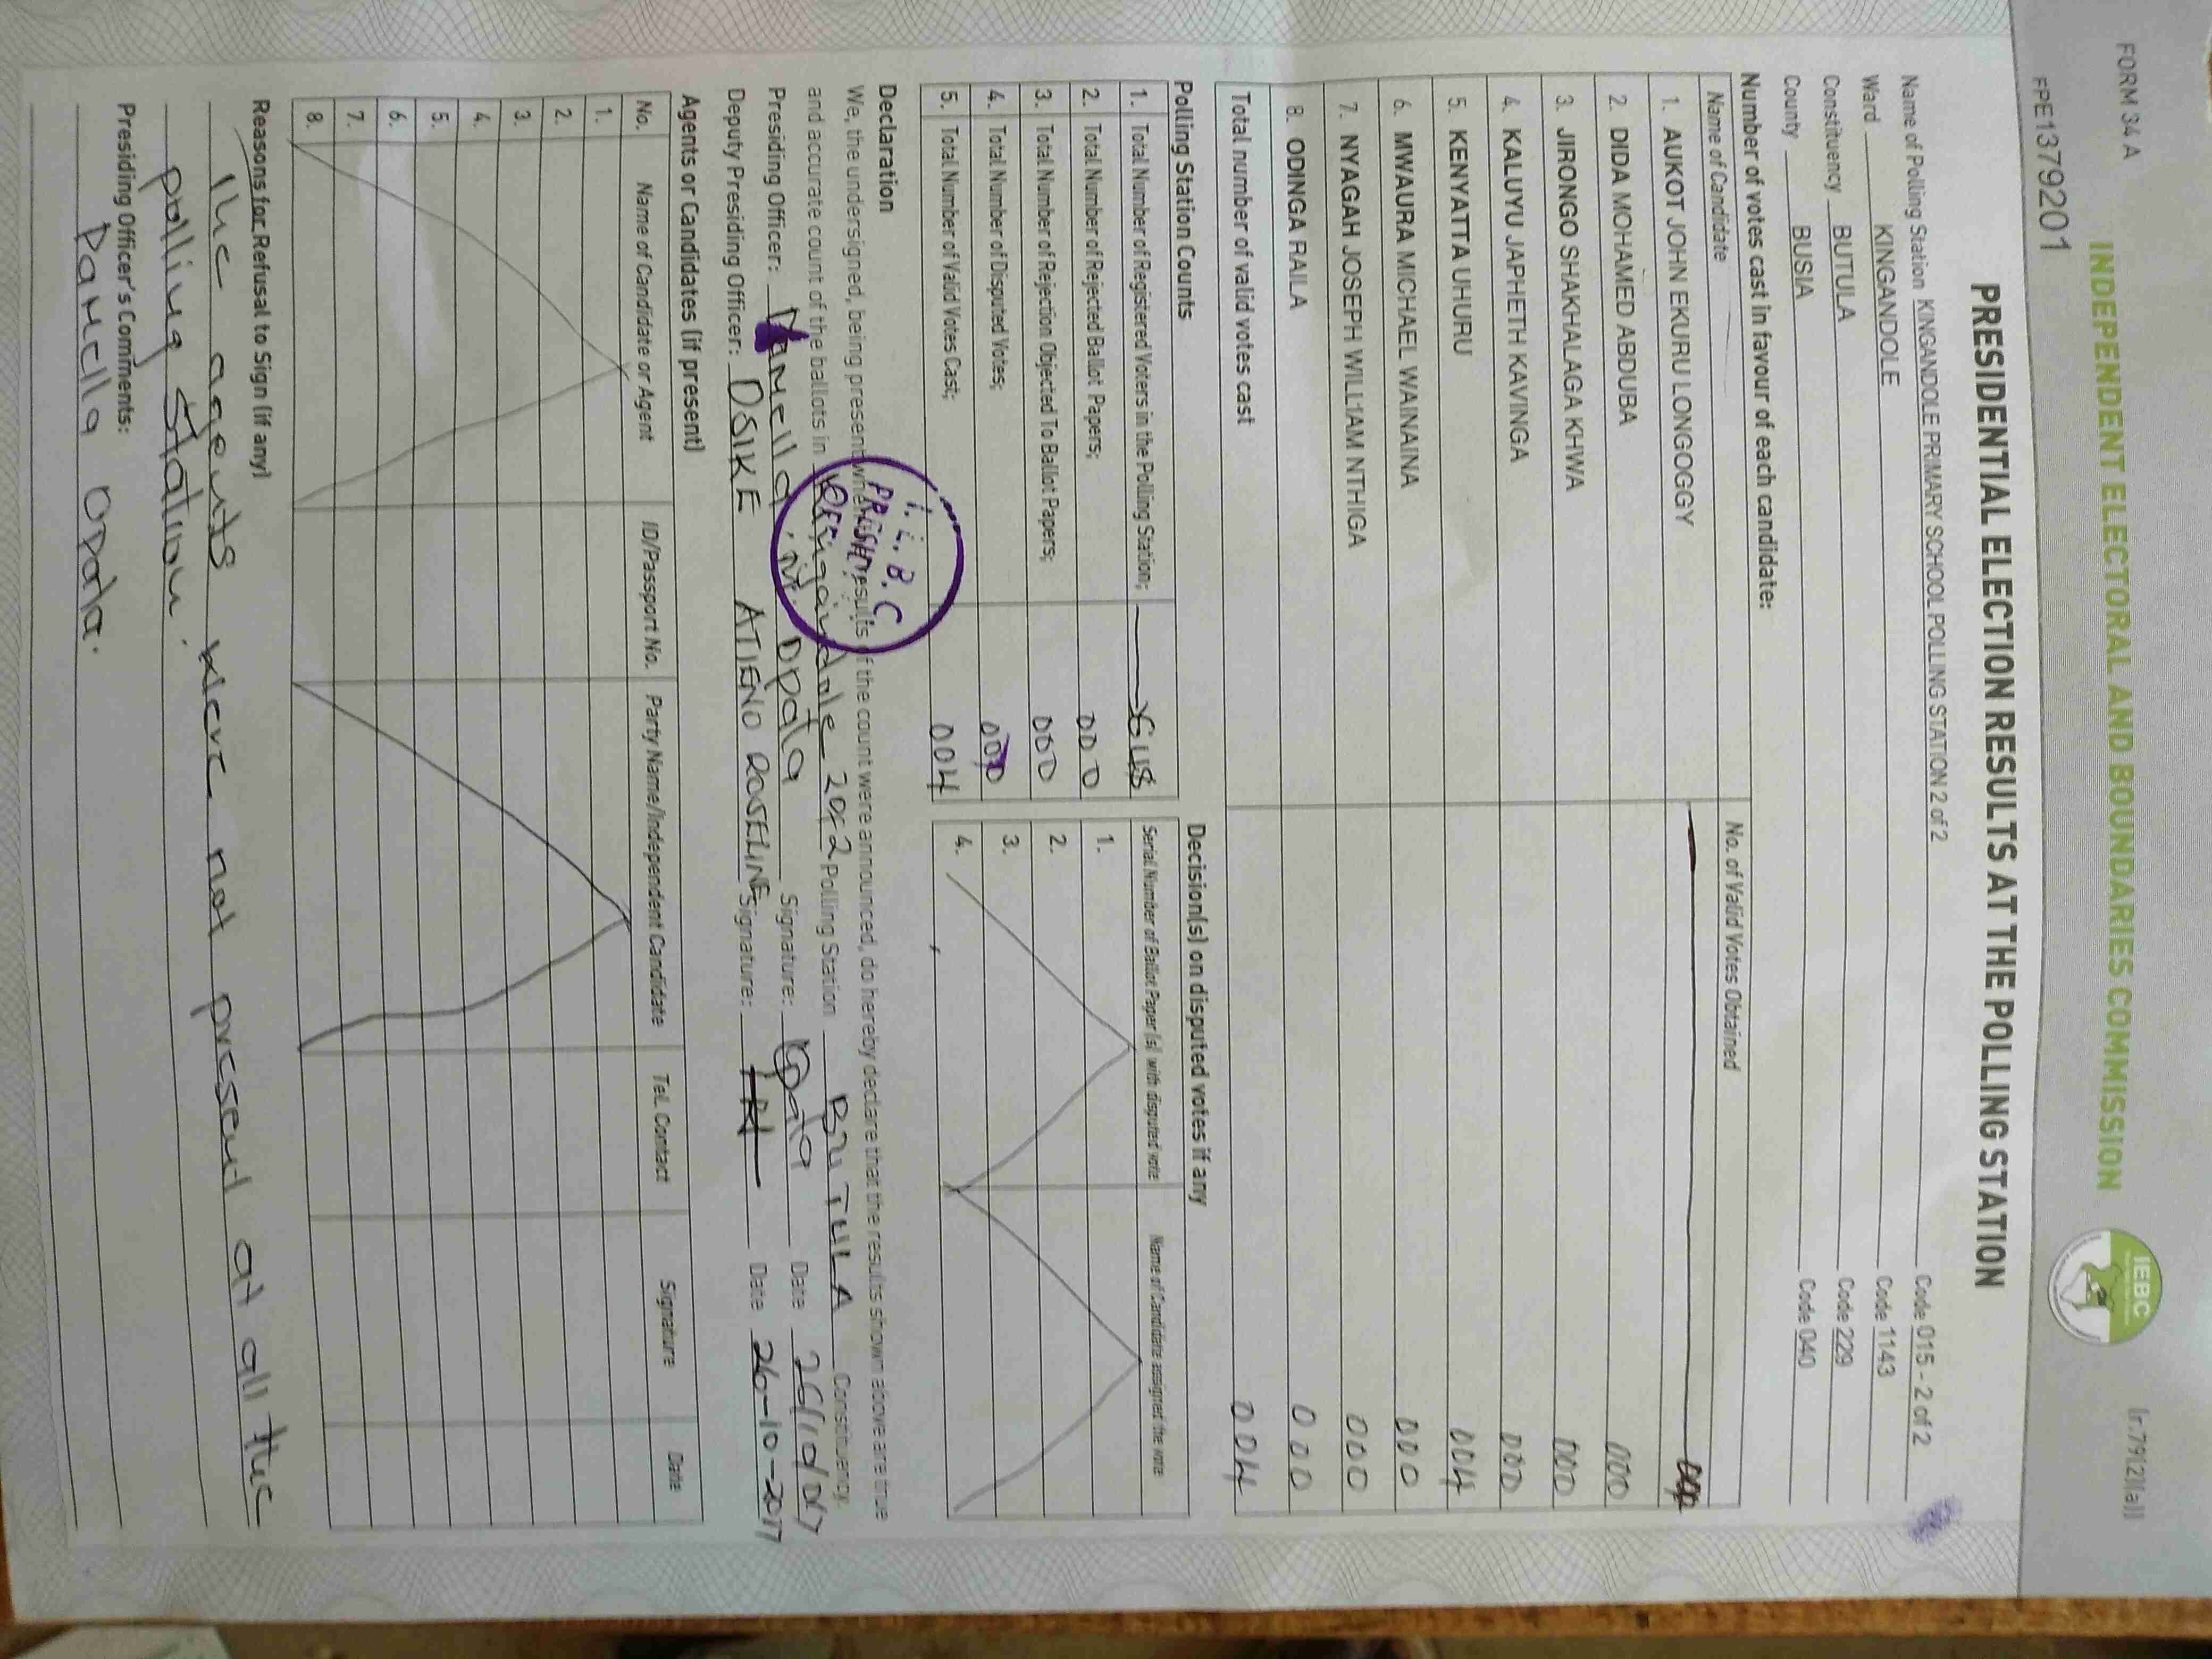 FORM 34 A
[r.79(2)(a)]
INDEPENDENT ELECTORAL AND BOUNDARIES COMMISSION
IEBC
FPE1379201
PRESIDENTIAL ELECTION RESULTS AT THE POLLING STATION
Name of Polling Station KINGANDOLE PRIMARY SCHOOL POLLING STATION 2 of 2 Code 015 - 2 of 2
Ward KINGANDOLE Code 1143
Constituency BUTULA Code 229
County BUSIA Code 040
Number of votes cast in favour of each candidate:
Name of Candidate No. of Valid Votes Obtained
1. AUKOT JOHN EKURU LONGOGGY 000
2. DIDA MOHAMED ABDUBA 000
3. JIRONGO SHAKHALAGA KHWA 000
4. KALUYU JAPHETH KAVINGA 000
5. KENYATTA UHURU 004
6. MWAURA MICHAEL WAINAINA 000
7. NYAGAH JOSEPH WILLIAM NTHIGA 000
8. ODINGA RAILA 000
Total number of valid votes cast 004
Polling Station Counts
1. Total Number of Registered Voters in the Polling Station;
2. Total Number of Rejected Ballot Papers; 000
3. Total Number of Rejection Objected To Ballot Papers; 000
4. Total Number of Disputed Votes; 000
5. Total Number of Valid Votes Cast; 004
Decision(s) on disputed votes if any
Serial Number of Ballot Paper (s) with disputed vote Name of Candidate assigned the vote
1.
2.
3.
4.
Declaration
We, the undersigned, being present when the results of the count were announced, do hereby declare that the results shown above are true
and accurate count of the ballots in Kingandole 2 of 2 Polling Station BUTULA Constituency.
I.E.B.C
Presiding Officer: Pamella N. Opata Signature: Date 26/10/017
Deputy Presiding Officer: OSIKE ATIENO ROSELINE Signature: Date 26-10-2017
Agents or Candidates (if present)
No. Name of Candidate or Agent ID/Passport No. Party Name/Independent Candidate Tel. Contact Signature Date
1.
2.
3.
4.
5.
6.
7.
8.
Reasons for Refusal to Sign (if any)
The agents were not present at all the
polling station.
Presiding Officer's Comments:
Pamella Opata.